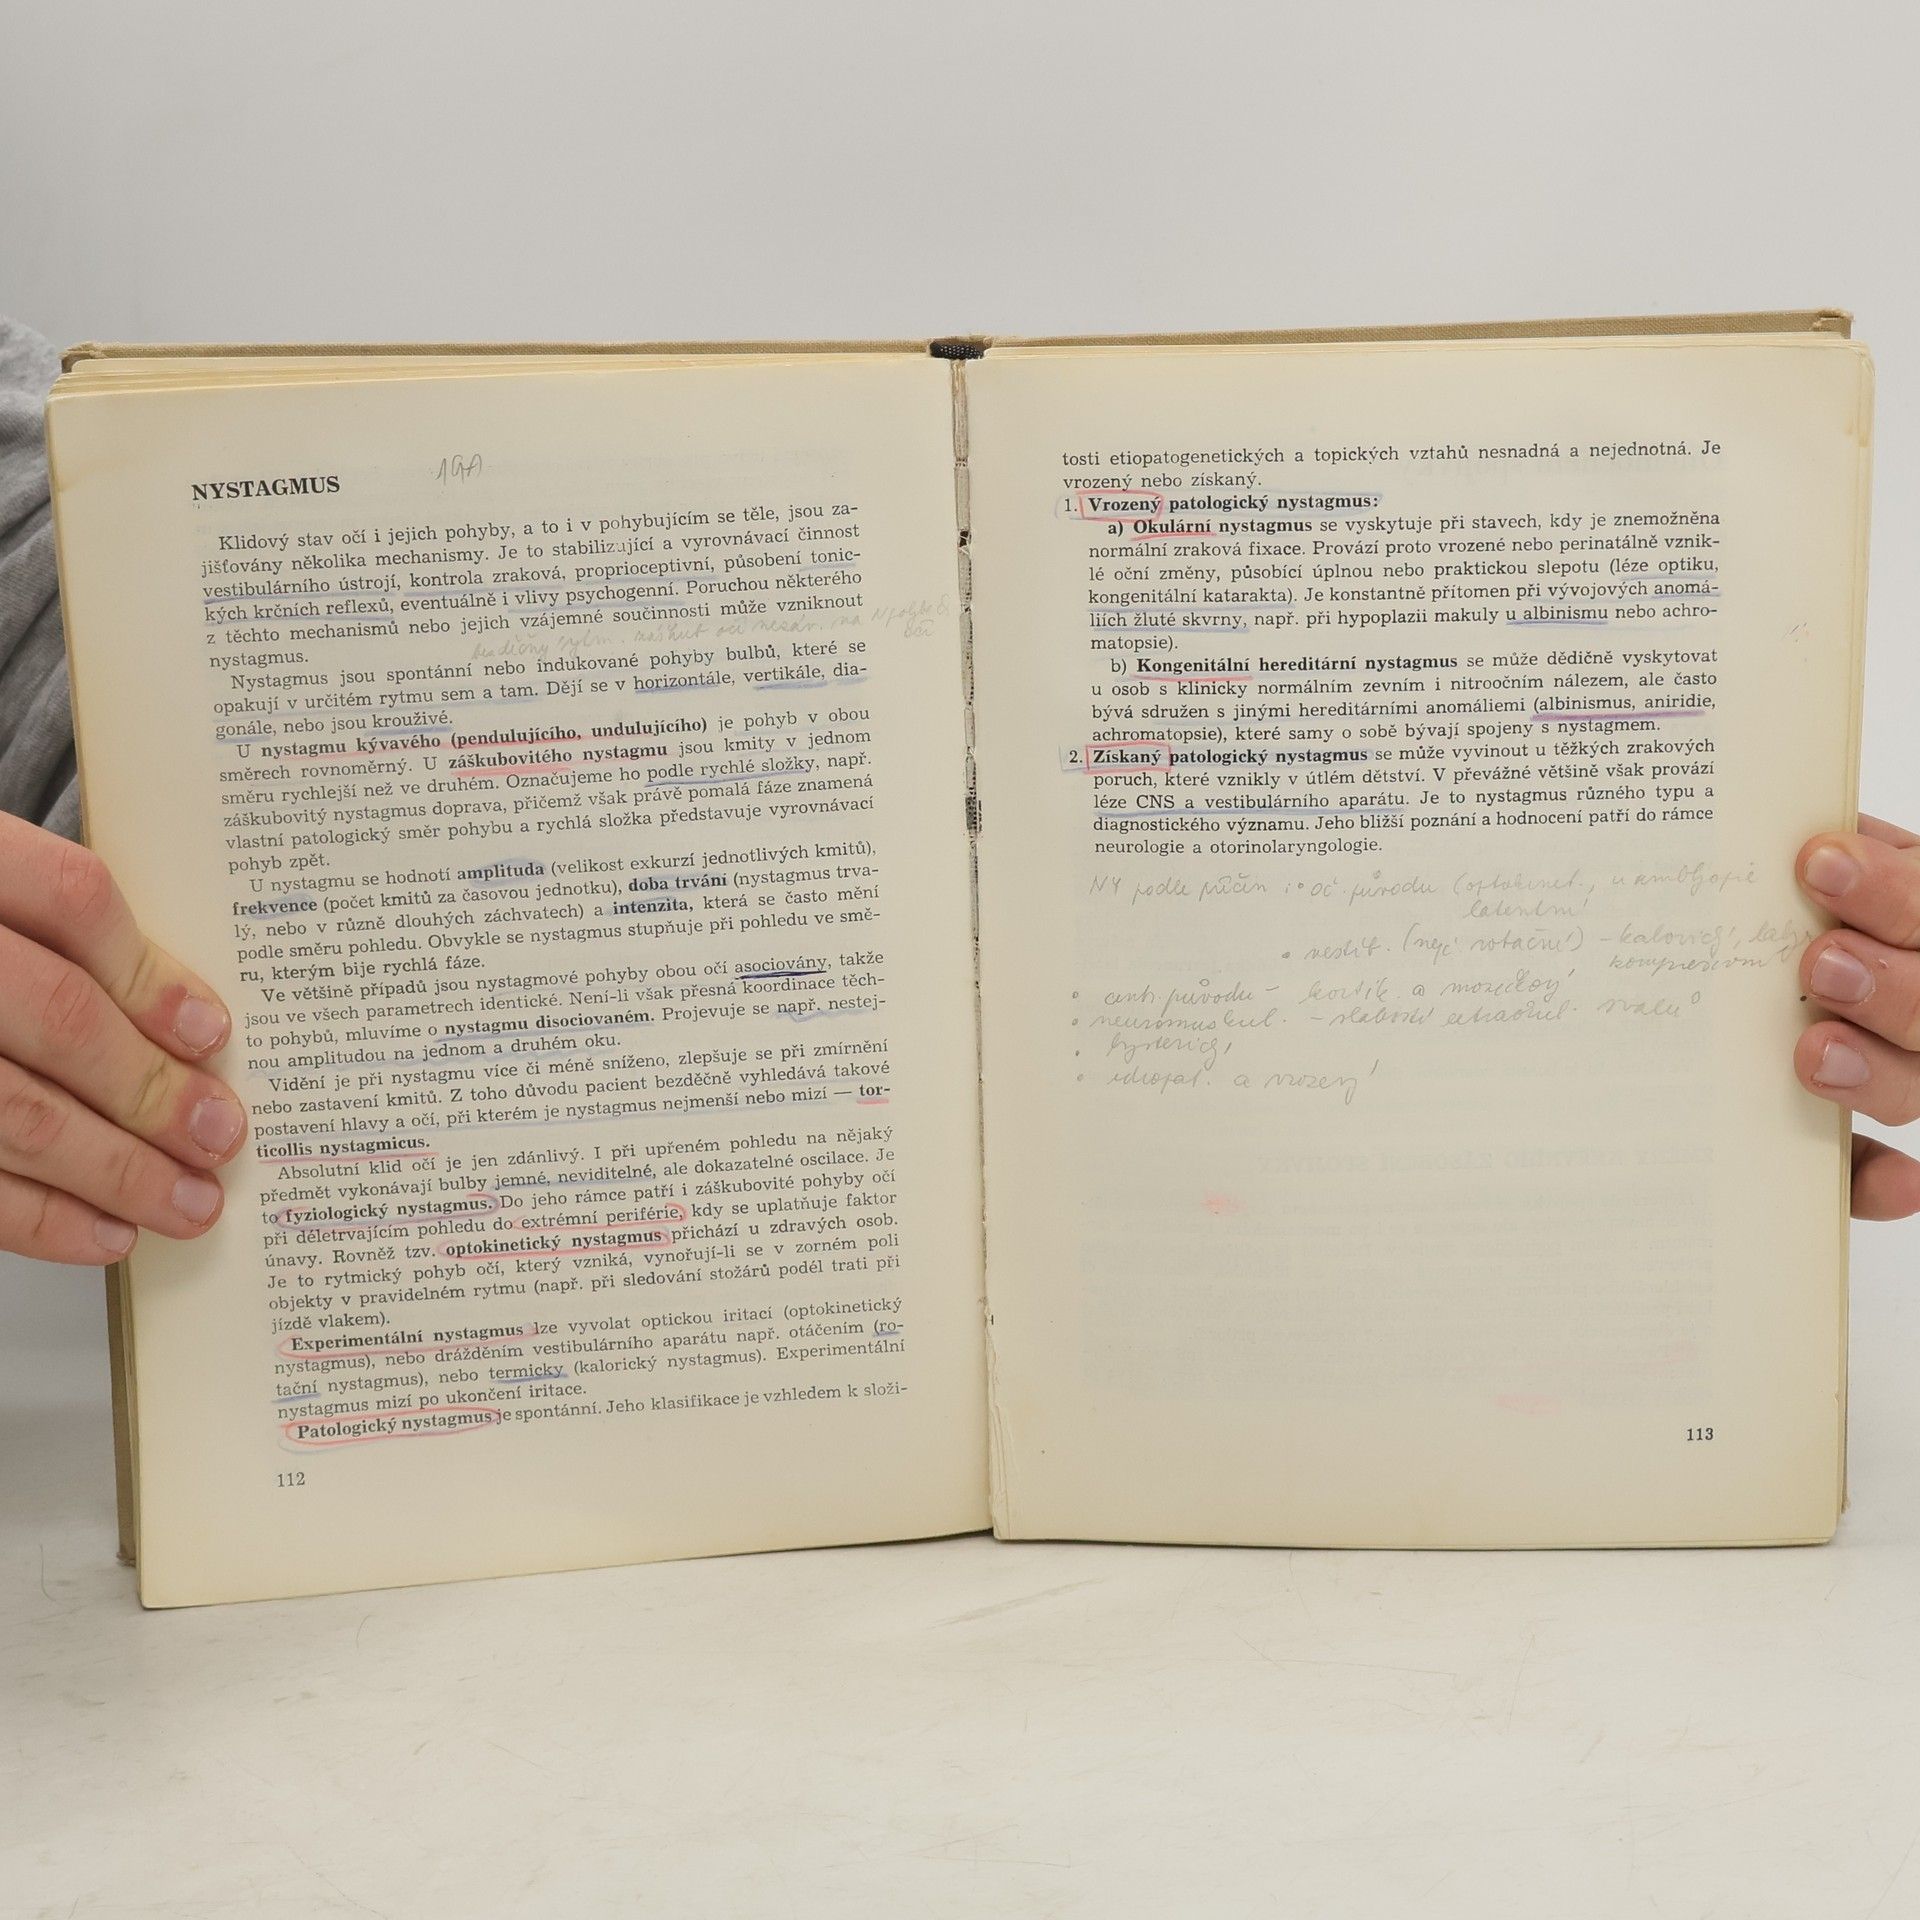 NYSTAGMUS
Klidový stav očí i jejich pohyby, a to i v pohybujícím se těle, jsou za-
jišťovány několika mechanismy. Je to stabilizující a vyrovnávací činnost
vestibulárního ústrojí, kontrola zraková, proprioceptivní, působení tonic-
kých krčních reflexů, eventuálně i vlivy psychogenní. Poruchou některého
z těchto mechanismů nebo jejich vzájemné součinnosti může vzniknout
nystagmus.
Nystagmus jsou spontánní nebo indukované pohyby bulbů, které se
opakují v určitém rytmu sem a tam. Dějí se v horizontále, vertikále, dia-
gonále, nebo jsou krouživé.
U nystagmu kývavého (pendulujícího, undulujícího) je pohyb v obou
směrech rovnoměrný. U záškubovitého nystagmu jsou kmity v jednom
směru rychlejší než ve druhém. Označujeme ho podle rychlé složky, např.
záškubovitý nystagmus doprava, přičemž však právě pomalá fáze znamená
vlastní patologický směr pohybu a rychlá složka představuje vyrovnávací
pohyb zpět.
U nystagmu se hodnotí amplituda (velikost exkurzí jednotlivých kmitů),
frekvence (počet kmitů za časovou jednotku), doba trvání (nystagmus trva-
lý, nebo v různě dlouhých záchvatech) a intenzita, která se často mění
podle směru pohledu. Obvykle se nystagmus stupňuje při pohledu ve smě-
ru, kterým bije rychlá fáze.
Ve většině případů jsou nystagmové pohyby obou očí asociovány, takže
jsou ve všech parametrech identické. Není-li však přesná koordinace těch-
to pohybů, mluvíme o nystagmu disociovaném. Projevuje se např. nestej-
nou amplitudou na jednom a druhém oku.
Vidění je při nystagmu více či méně sníženo, zlepšuje se při zmírnění
nebo zastavení kmitů. Z toho důvodu pacient bezděčně vyhledává takové
postavení hlavy a očí, při kterém je nystagmus nejmenší nebo mizí — tor-
ticollis nystagmicus.
Absolutní klid očí je jen zdánlivý. I při upřeném pohledu na nějaký
předmět vykonávají bulby jemné, neviditelné, ale dokazatelné oscilace. Je
to fyziologický nystagmus. Do jeho rámce patří i záškubovité pohyby očí
při déletrvajícím pohledu do extrémní periférie, kdy se uplatňuje faktor
únavy. Rovněž tzv. optokinetický nystagmus přichází u zdravých osob.
Je to rytmický pohyb očí, který vzniká, vynořují-li se v zorném poli
objekty v pravidelném rytmu (např. při sledování stožárů podél trati při
jízdě vlakem).
Experimentální nystagmus lze vyvolat optickou iritací (optokinetický
nystagmus), nebo drážděním vestibulárního aparátu např. otáčením (ro-
tační nystagmus), nebo termicky (kalorický nystagmus). Experimentální
nystagmus mizí po ukončení iritace.
Patologický nystagmus je spontánní. Jeho klasifikace je vzhledem k složi-
112
tosti etiopatogenetických a topických vztahů nesnadná a nejednotná. Je
vrozený nebo získaný.
1. Vrozený patologický nystagmus:
a) Okulární nystagmus se vyskytuje při stavech, kdy je znemožněna
normální zraková fixace. Provází proto vrozené nebo perinatálně vznik-
lé oční změny, působící úplnou nebo praktickou slepotu (léze optiku,
kongenitální katarakta). Je konstantně přítomen při vývojových anomá-
liích žluté skvrny, např. při hypoplazii makuly u albinismu nebo achro-
matopsie).
b) Kongenitální hereditární nystagmus se může dědičně vyskytovat
u osob s klinicky normálním zevním i nitroočním nálezem, ale často
bývá sdružen s jinými hereditárními anomáliemi (albinismus, aniridie,
achromatopsie), které samy o sobě bývají spojeny s nystagmem.
2. Získaný patologický nystagmus se může vyvinout u těžkých zrakových
poruch, které vznikly v útlém dětství. V převážné většině však provází
léze CNS a vestibulárního aparátu. Je to nystagmus různého typu a
diagnostického významu. Jeho bližší poznání a hodnocení patří do rámce
neurologie a otorinolaryngologie.
NY podle příčin : • oč. původu (optokinet., u amblyopie
latentní
• vestib. (nej rotační) - kalorický,
kompresivní
• centr. původu - kortik. a mozečkový
• neuromuskul. - slabosti extraokul. svalů
• hysterický
• idiopat. a vrozený
113